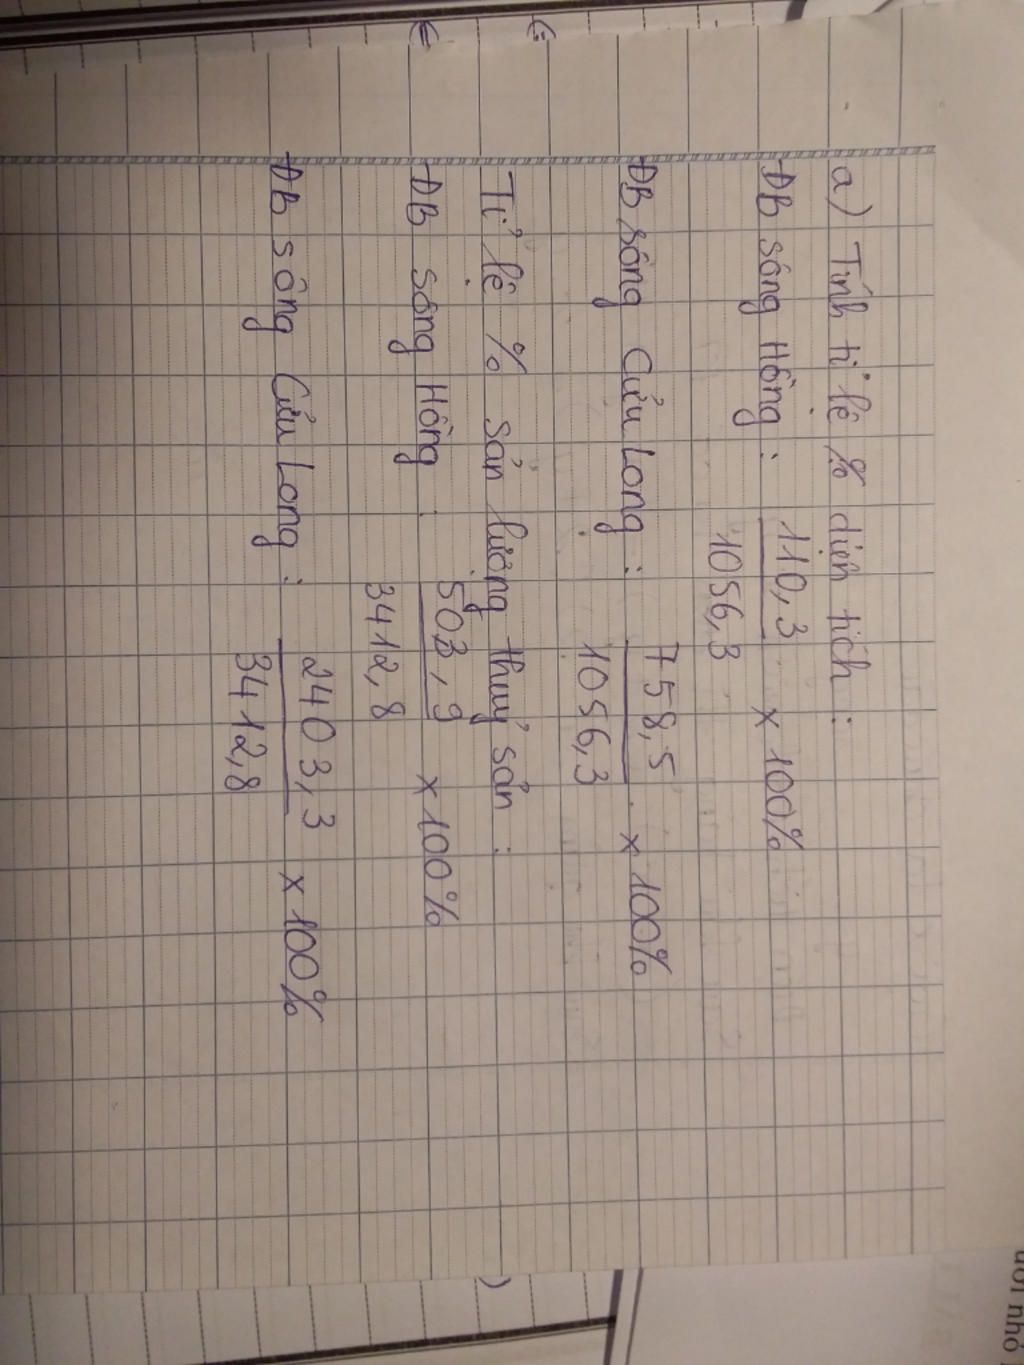 a) Tính tỉ lệ % diện tích :
ĐB sông Hồng : 110,3 / 1056,3 x 100%
ĐB sông Cửu Long : 758,5 / 1056,3 x 100%
Tỉ lệ % sản lượng thuỷ sản :
ĐB sông Hồng : 503,9 / 3412,8 x 100%
ĐB sông Cửu Long : 2403,3 / 3412,8 x 100%